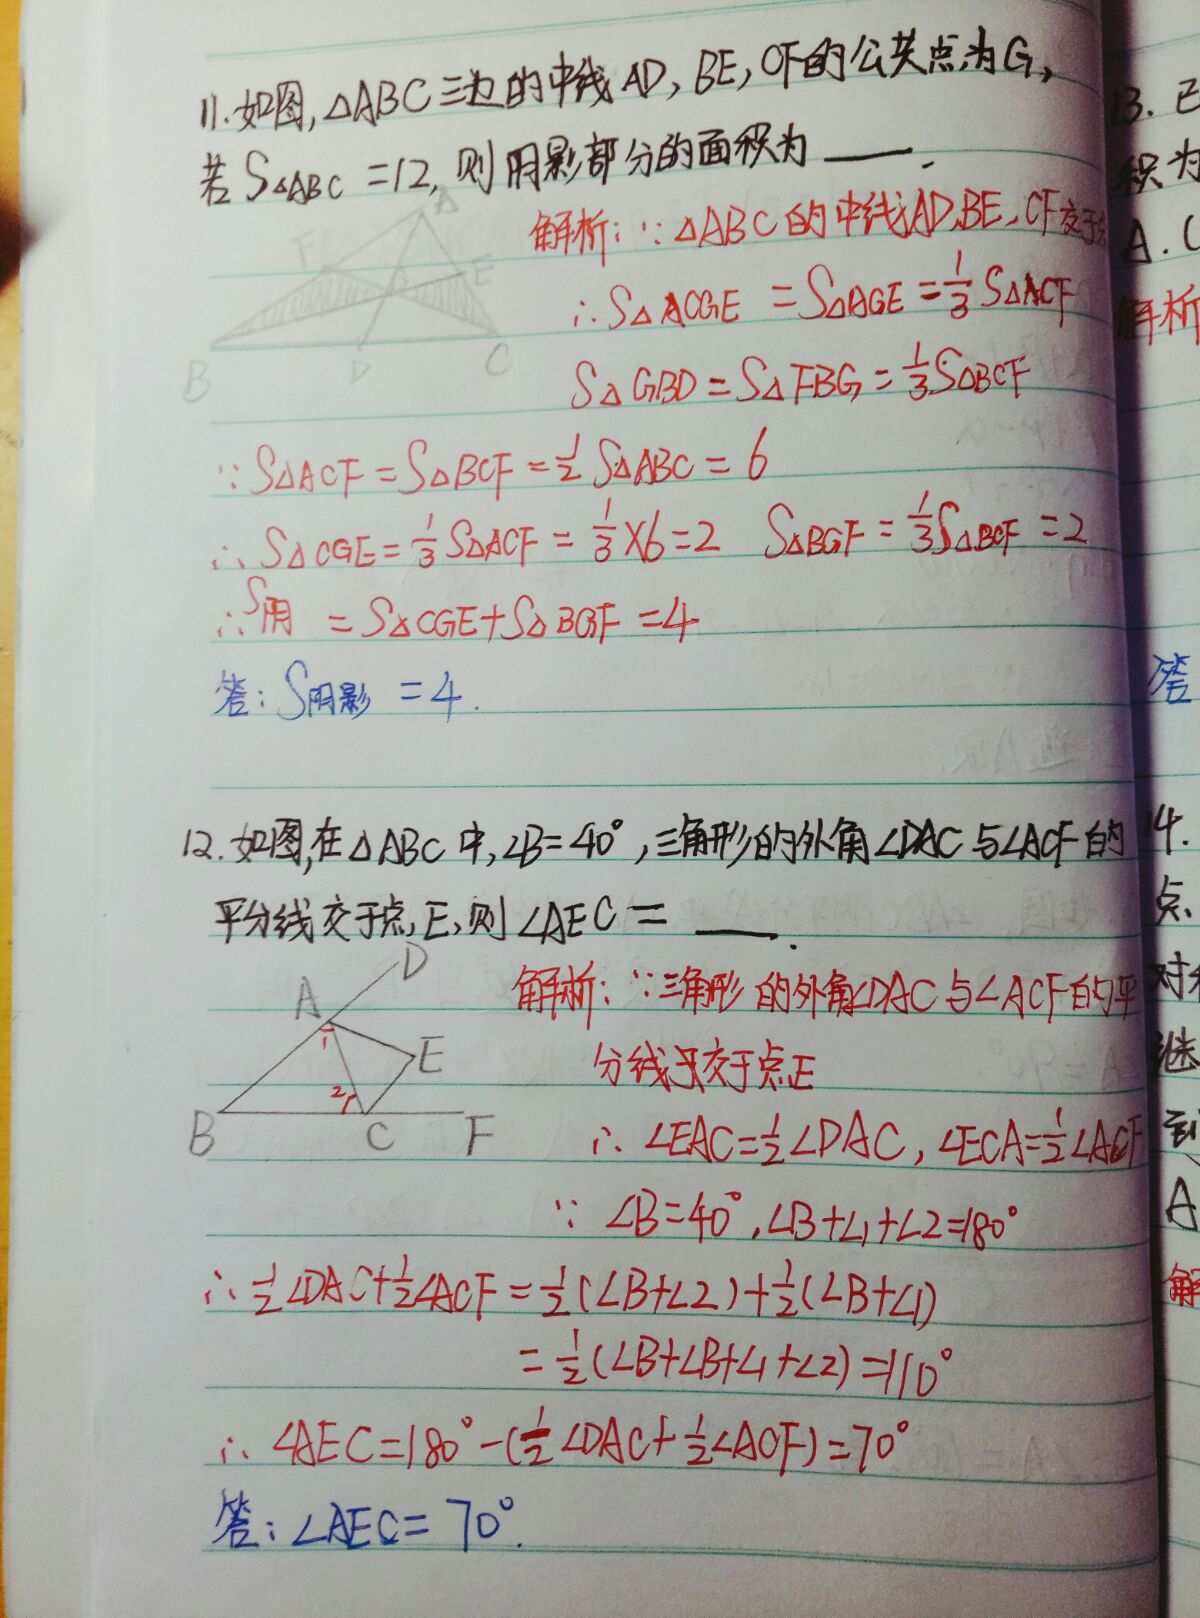 11.如图,△ABC三边的中线AD,BE,CF的公共点为G,
若S△ABC=12,则阴影部分的面积为____.
A
F
E
B
D
C
解析:∵△ABC的中线AD,BE,CF交于
∴S△ACGE=S△AGE=1/3S△ACF
S△GBD=S△FBG=1/3S△BCF
∵S△ACF=S△BCF=1/2S△ABC=6
∴S△CGE=1/3S△ACF=1/3×6=2 S△BGF=1/3S△BCF=2
∴S阴=S△CGE+S△BGF=4
答:S阴影=4.
12.如图,在△ABC中,∠B=40°,三角形的外角∠DAC与∠ACF的
平分线交于点,E,则∠AEC=____.
D
A
1
E
2
B
C
F
解析:∵三角形的外角∠DAC与∠ACF的平
分线交于点E
∴∠EAC=1/2∠DAC,∠ECA=1/2∠ACF
∵∠B=40°,∠B+∠1+∠2=180°
∴1/2∠DAC+1/2∠ACF=1/2(∠B+∠2)+1/2(∠B+∠1)
=1/2(∠B+∠B+∠1+∠2)=110°
∴∠AEC=180°-(1/2∠DAC+1/2∠ACF)=70°
答:∠AEC=70°.
13.已
积为
A.(
解析
答
14.
点
对
继
到
A
解